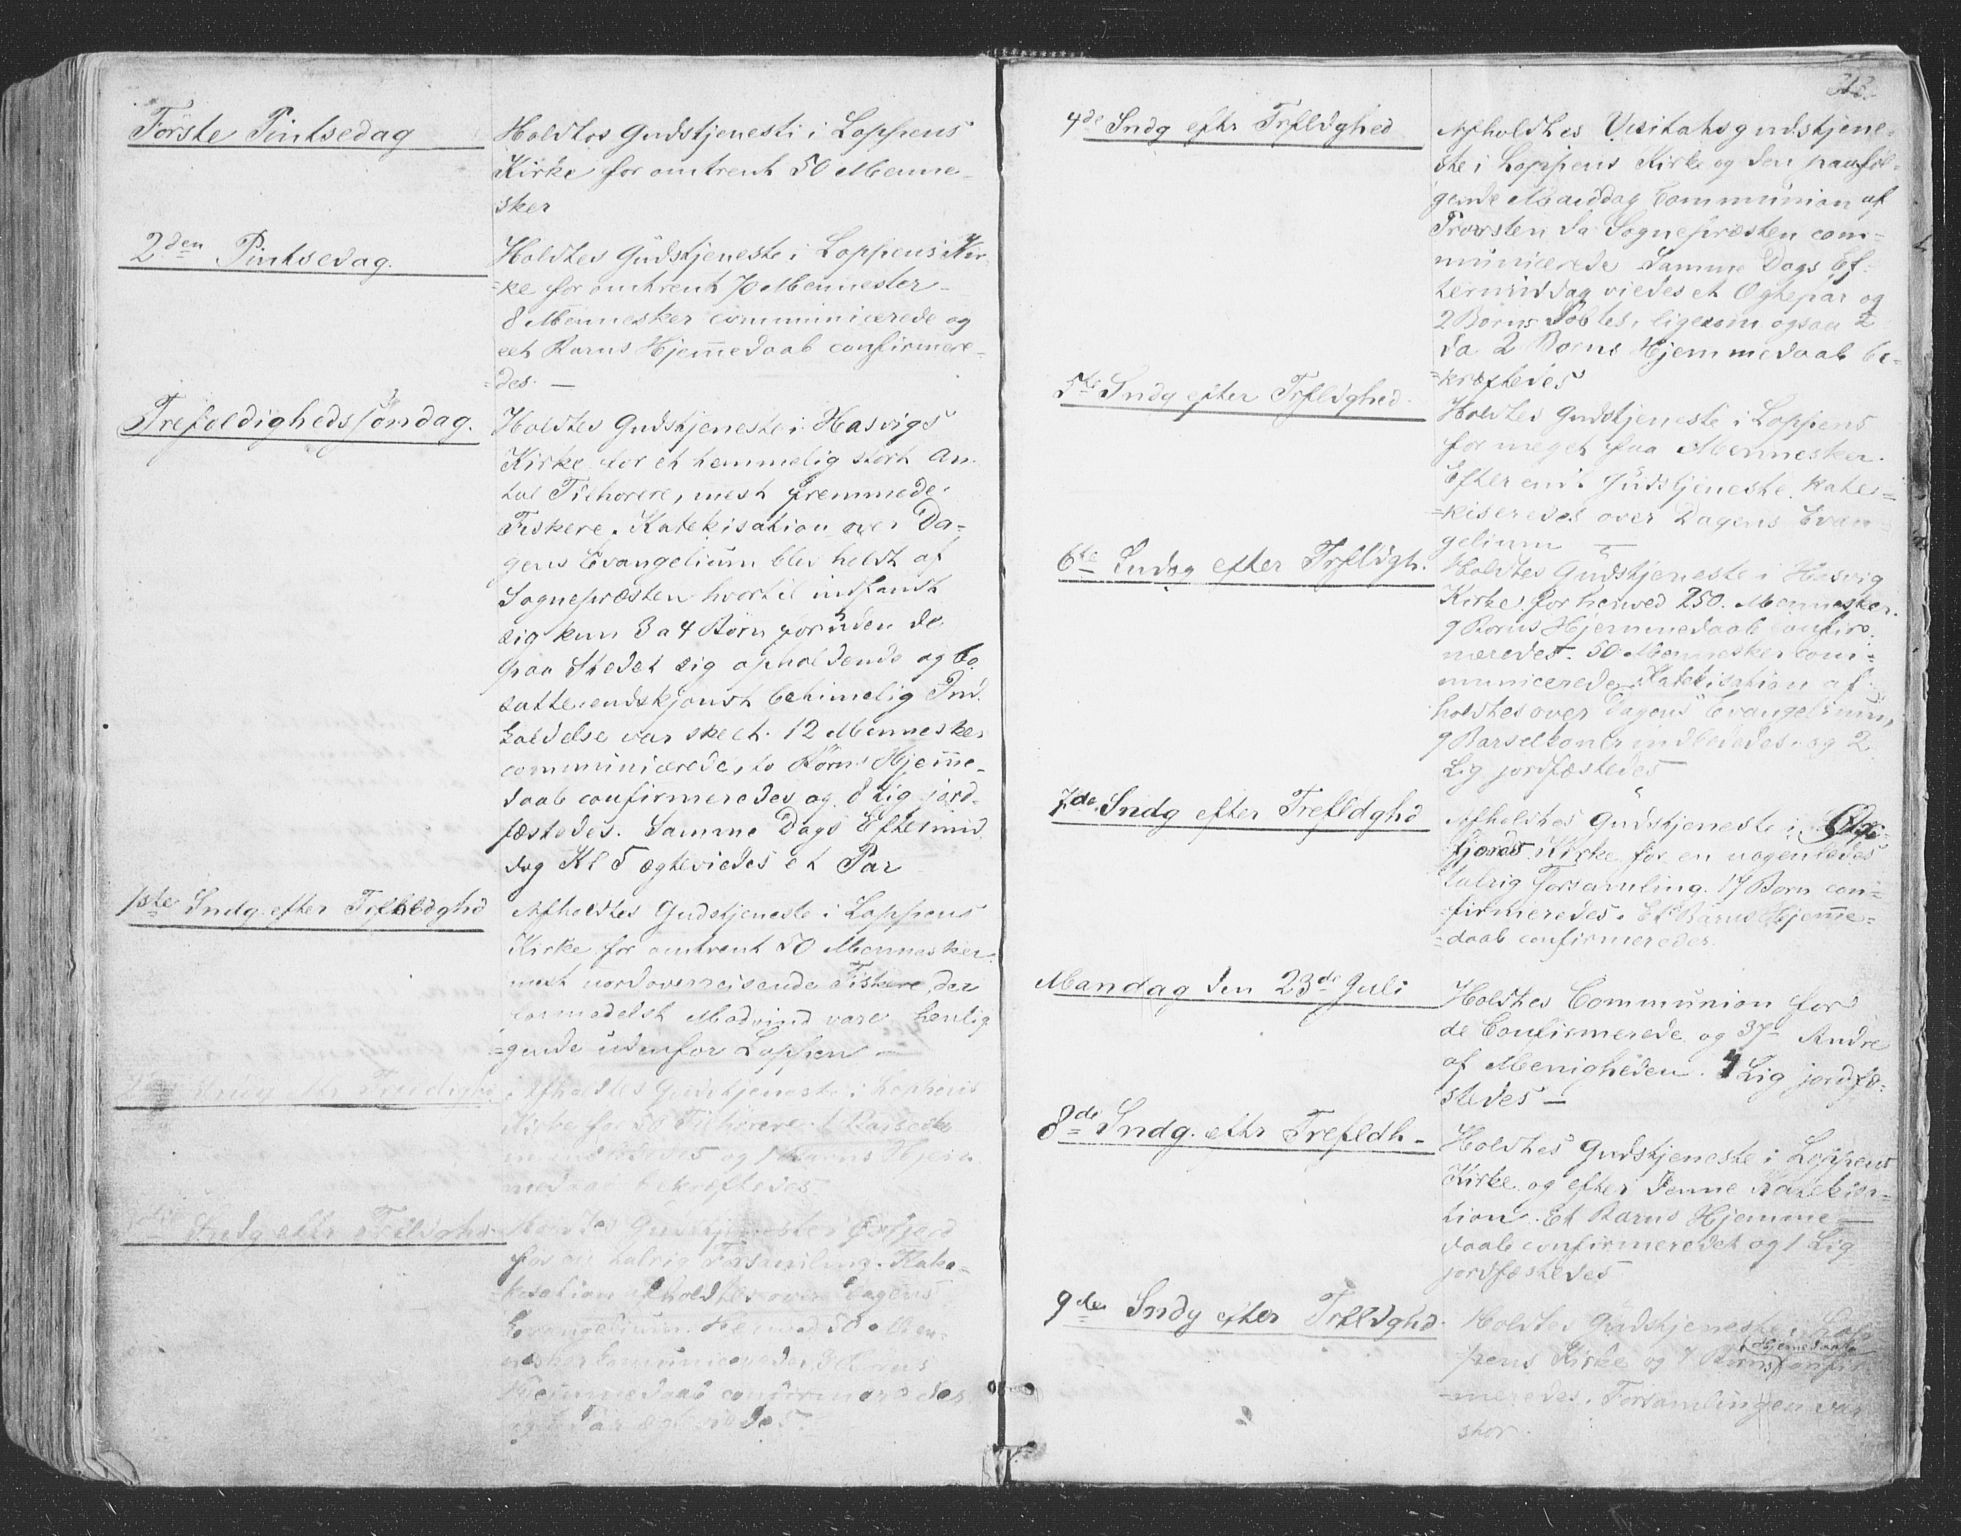 Første Pintsedag
Holdtes Gudstjeneste i Loppens
Kirke for omtrent 50 Menne-
sker
2den Pintsedag.
Holdtes Gudstjeneste i Loppens Kir-
=ke for omtrent 70 Mennesker
8 Mennesker communicerede og
eet Barns Hjemmedaab confirmere-
=des. —
Trefoldigheds Søndag.
Holdtes Gudstjeneste i Hasvigs
Kirke for et temmelig stort An-
tal Tilhørere, mest fremmede
Fiskere. Katekisation over Da-
gens Evangelium blev holdt af
Sognepræsten hvortil indfandt
sig kun 3 a 4 Børn foruden de
paa Stedet sig opholdende og bo
satte endskjøndt betimelig Ind
kaldelse var skeet. 12 Mennesker
communicerede, to Børns Hjemme-
daab confirmeredes og 8 Lig jord-
fæstedes. Samme Dags Eftermid
dag Kl 5 ægteviedes et Par
1ste Sndg. efter Trefoldghd
Afholdtes Gudstjeneste i Loppens
Kirke for omtrent 50 Mennesker
mest nordoverreisende Fiskere, der
formedelst Modvind vare henlig
=gende udenfor Loppen —
Afholdtes Gudstjeneste i Loppens
Kirke for 50 Tilhørere. 1 Barselko
ne indlededes og 1 Barns Hjem
medaab bekræftedes
Sndg eftr Trfldghd
Holdtes Gudstjeneste i Øxfjord
for en talrig Forsamling. Kate-
kisation afholdtes over Dagens
Evangelium. Henved 50 Men-
nesker communicerede, 3 Børns
Hjemmedaab confirmeredes
og 1 Par ægteviedes.
313.
4de Sndg eftr Trfldghed
Afholdtes Visitatsgudstjene-
ste i Loppens Kirke og den paaføl-
gende Mandag Communion af
Provsten da Sognepræsten com-
municerede Samme Dags Ef-
termiddag viedes et Ægtepar og
2 Børn døbtes, ligesom ogsaa 2
da 2 Børns Hjemmedaab be-
=kræftedes
5te Sndg efter Trfldghed.
Holdtes Gudstjeneste i Loppens
for meget faa Mennesker.
Efter endt Gudstjeneste kate-
=kiseredes over Dagens Evan-
gelium —
6te Sndag efter Trfldgh.
Holdtes Gudstjeneste i Hasvig
Kirke for henved 250 Mennesker.
9 Børns Hjemmedaab confir-
meredes. 50 Mennesker com-
municerede. Katekisation af-
holdtes over Dagens Evangelium,
9 Barselkoner indlededes og 2
Lig jordfæstedes
7de Sndg efter Trefldghd
Afholdtes Gudstjeneste i Øx-
fjords Kirke for en nogenledes
talrig Forsamling. 17 Børn con-
firmeredes. Et Barns Hjemme-
=daab confirmeredes.
Mandag den 23de Juli
Holdtes Communion for
de Confirmerede og 37 Andre
af Menigheden. 4 Lig jordfæ-
stedes —
8de Sndg. eftr Trefldh-
Holdtes Gudstjeneste i Loppens
Kirke og efter denne Katekisa-
tion. Et Barns Hjemme-
daab confirmeredet og 1 Lig
jordfæstedes
9de Sndg efter Trfldghd.
Holdtes Gudstjeneste i Lop-
pens Kirke og 7 Børns Hjemmedaab confir-
=meredes. Forsamlingen var
stor.